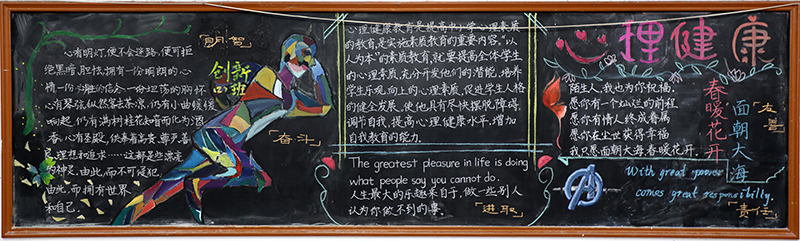 「明智」
心有明灯，便不会迷路，便可拒
绝黑暗、胆怯，拥有一份明朗的心
情，一份必胜的信念，一份坦荡的胸怀……
心有琴弦，纵然客去茶凉，仍有小曲缓缓
响起，仍有满树桂花知音而化为酒
香；心有圣殿，供奉着高贵、尊严、善
良、理想和追求……这都是些漂亮
的神灵，由此，而不可侵犯，
由此，而拥有世界
和自己。
创新
一班
「奋斗」
心理健康教育是提高中小学心理素质
的教育，是实施素质教育的重要内容。"以
人为本"的素质教育，就要提高全体学生
的心理素质，充分开发他们的潜能，培养
学生乐观、向上的心理素质，促进学生人格
的健全发展。使他具有尽快摆脱障碍，
调节自我，提高心理健康水平，增加
自我教育的能力。
The greatest pleasure in life is doing
what people say you cannot do.
人生最大的乐趣来自于，做一些别人
认为你做不到的事。
「进取」
心理健康
陌生人，我也为你祝福，
愿你有一个灿烂的前程
愿你有情人终成眷属
愿你在尘世获得幸福
我只愿面朝大海春暖花开。
面朝大海
春暖花开
「友善」
With great power
comes great responsibility.
「责任」